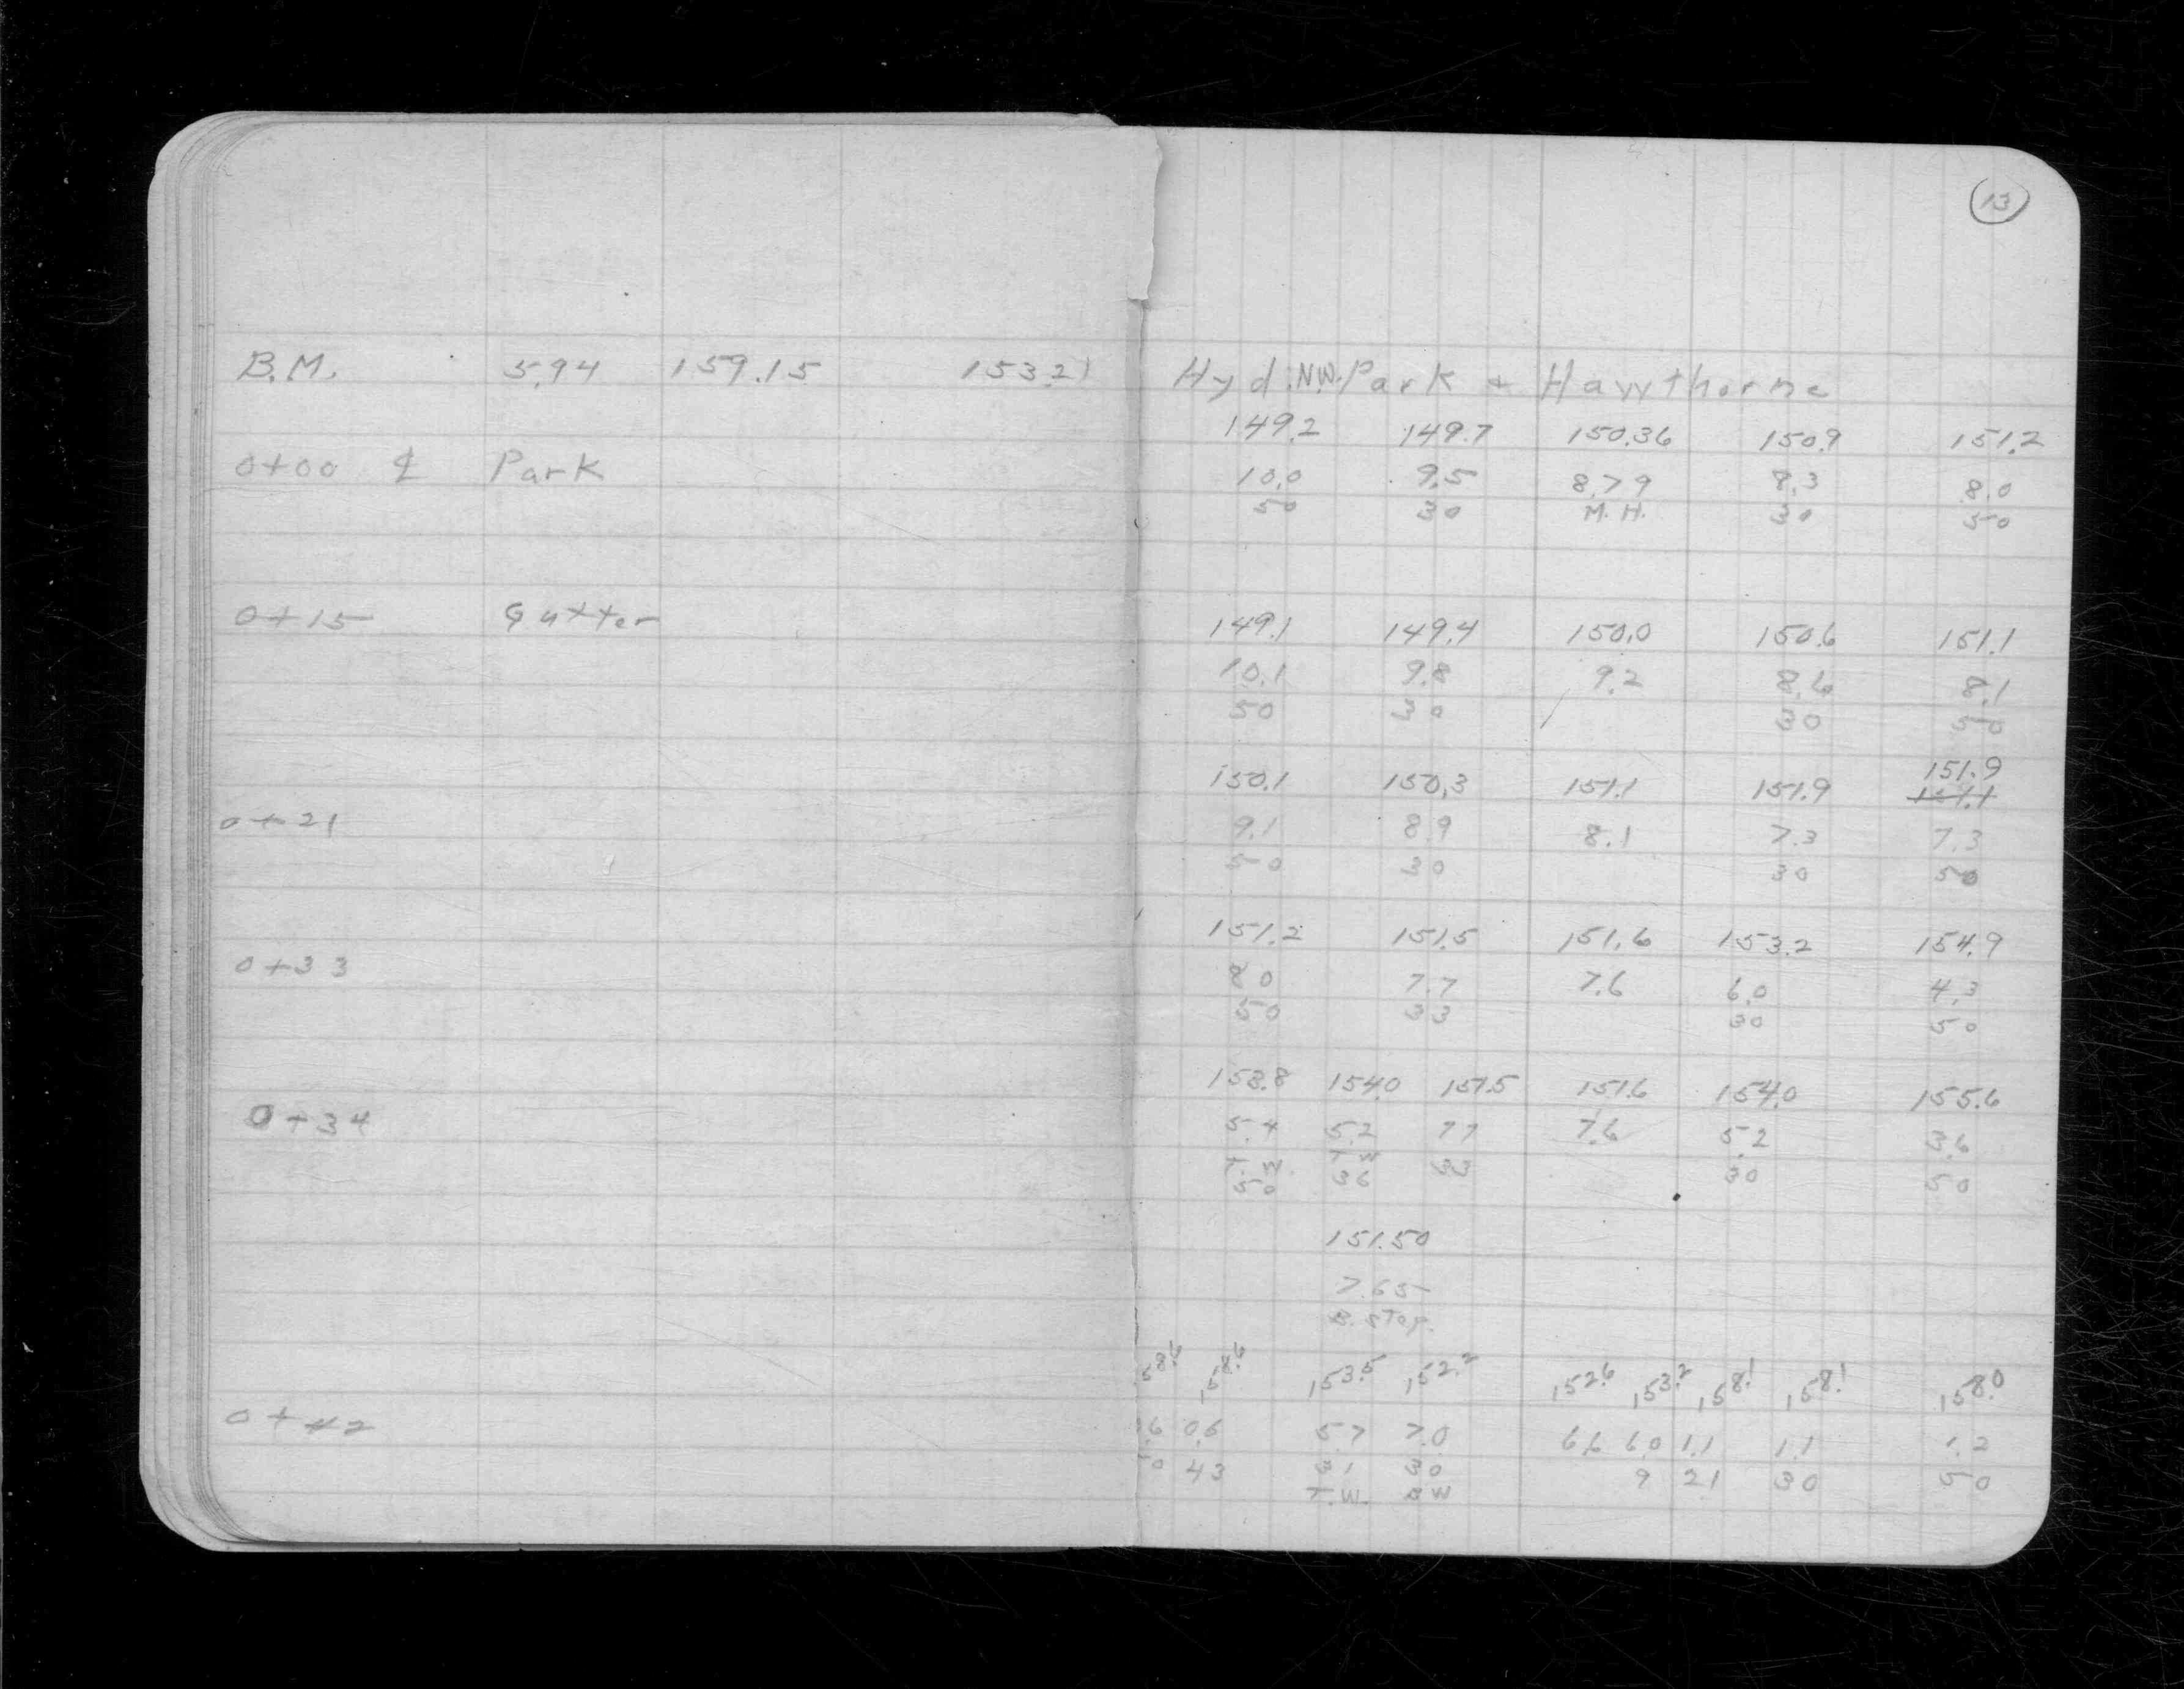 13
B.M. 5.94 159.15 153.21 Hyd. N.W. Park + Hawthorne
149.2 149.7 150.36 150.9 151.2
0+00 ℄ Park 10.0 9.5 8.79 8.3 8.0
50 30 M.H. 30 50
0+15 Gutter 149.1 149.4 150.0 150.6 151.1
10.1 9.8 9.2 8.6 8.1
50 30 30 50
151.9
150.1 150.3 151.1 151.9 151.1
0+21 9.1 8.9 8.1 7.3 7.3
50 30 30 50
151.2 151.5 151.6 153.2 154.9
0+33 8.0 7.7 7.6 6.0 4.3
50 33 30 50
153.8 154.0 151.5 151.6 154.0 155.6
0+34 5.4 5.2 7.7 7.6 5.2 3.6
T.W. T.W. 33 30 50
50 36
151.50
7.65
B. STop.
58.6 158.6 153.5 152.2 152.6 153.2 158.1 158.1 158.0
0+42 .6 0.6 5.7 7.0 6.6 6.0 1.1 1.1 1.2
50 43 31 30 9 21 30 50
T.W. B W